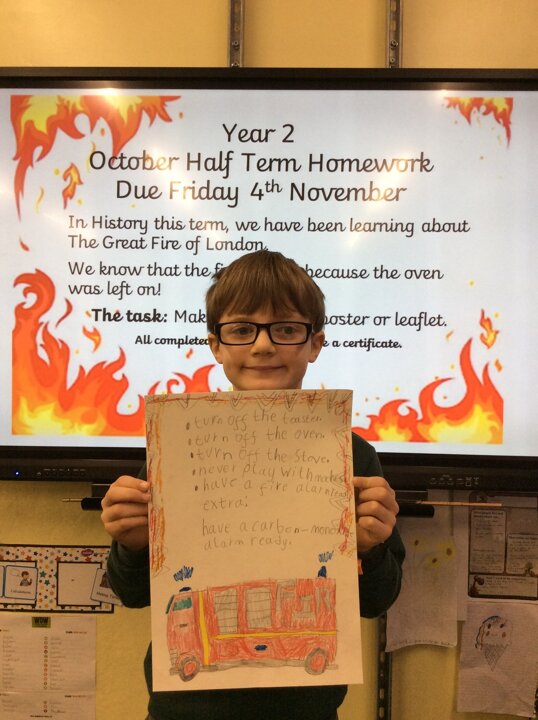 Year 2
October Half Term Homework
Due Friday 4th November
In History this term, we have been learning about
The Great Fire of London.
We know that the because the oven
was left on!
The task: oster or leaflet.
All complete e a certificate.
• turn off the toaster.
• turn off the oven.
• turn off the Stove.
• never play with matches
• have a fire alarm ready
extra:
have a carbon-mono
alarm ready.
WOW